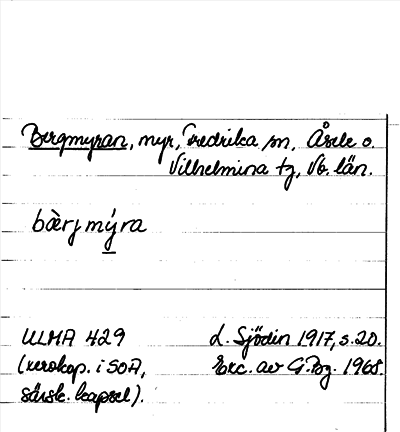 Bergmyran, myr, Fredrika sn, Åsele o.
Vilhelmina tg, Vb. län.
bàrj mýra
ULMA 429
L. Sjödin 1917, s. 20.
(xerokop. i SOA,
Exc. av G. Bg. 1968.
särsk. kapsel).